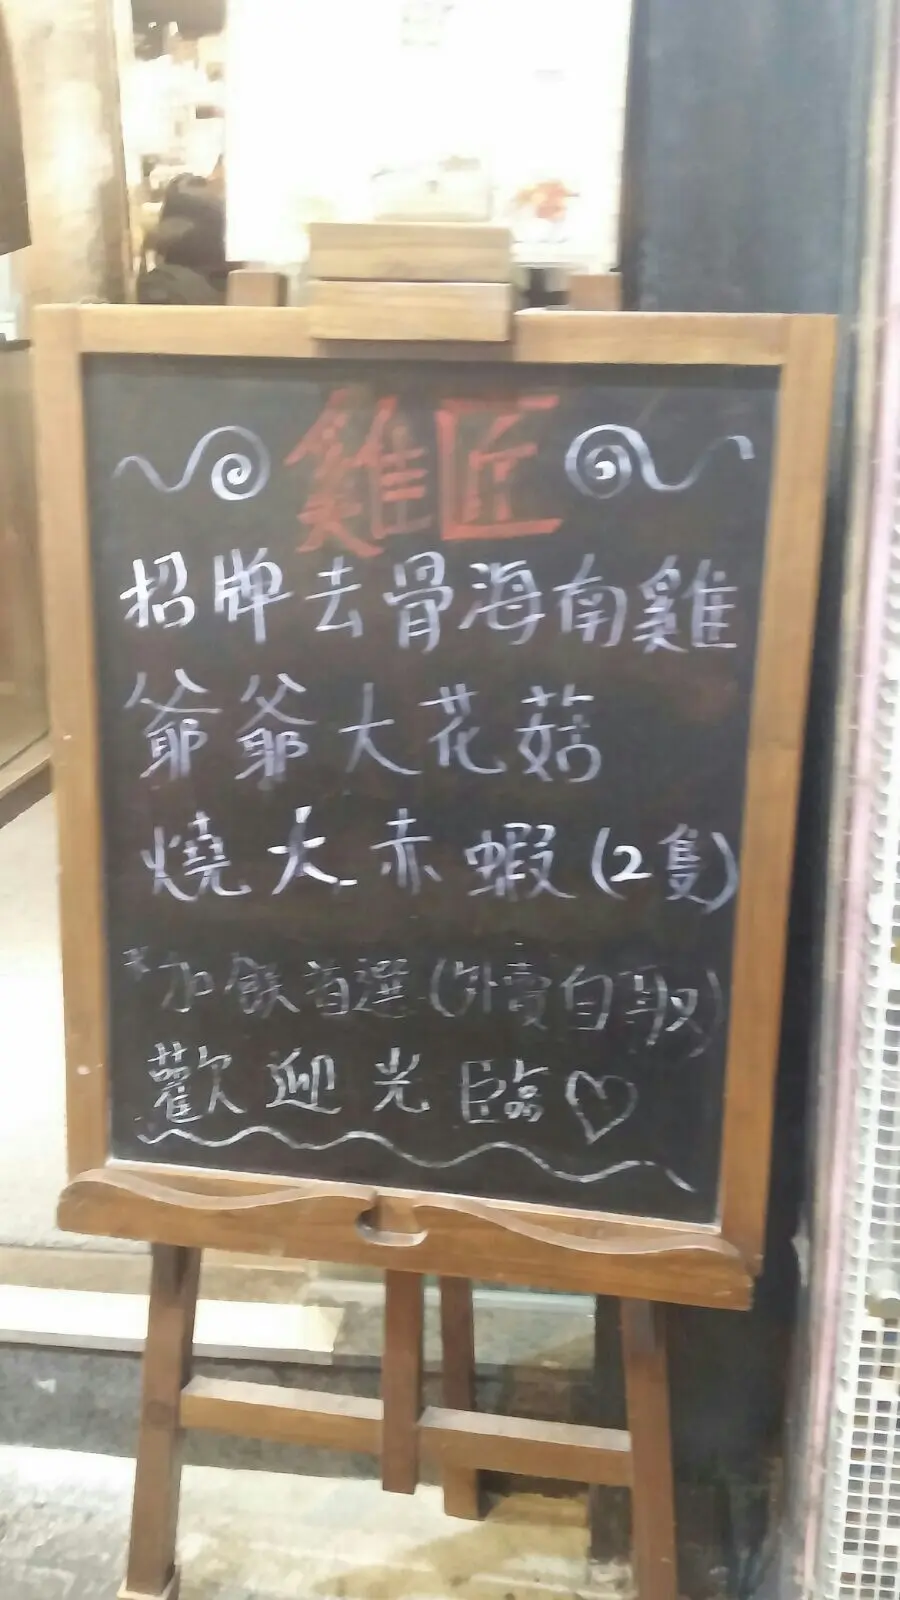 雞匠
招牌去骨海南雞
爺爺大花菇
燒大赤蝦(2隻)
*加餸首選(外賣自取)
歡迎光臨♡